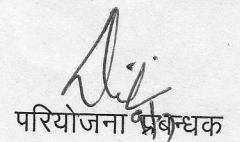 परियोजना प्रबन्धक